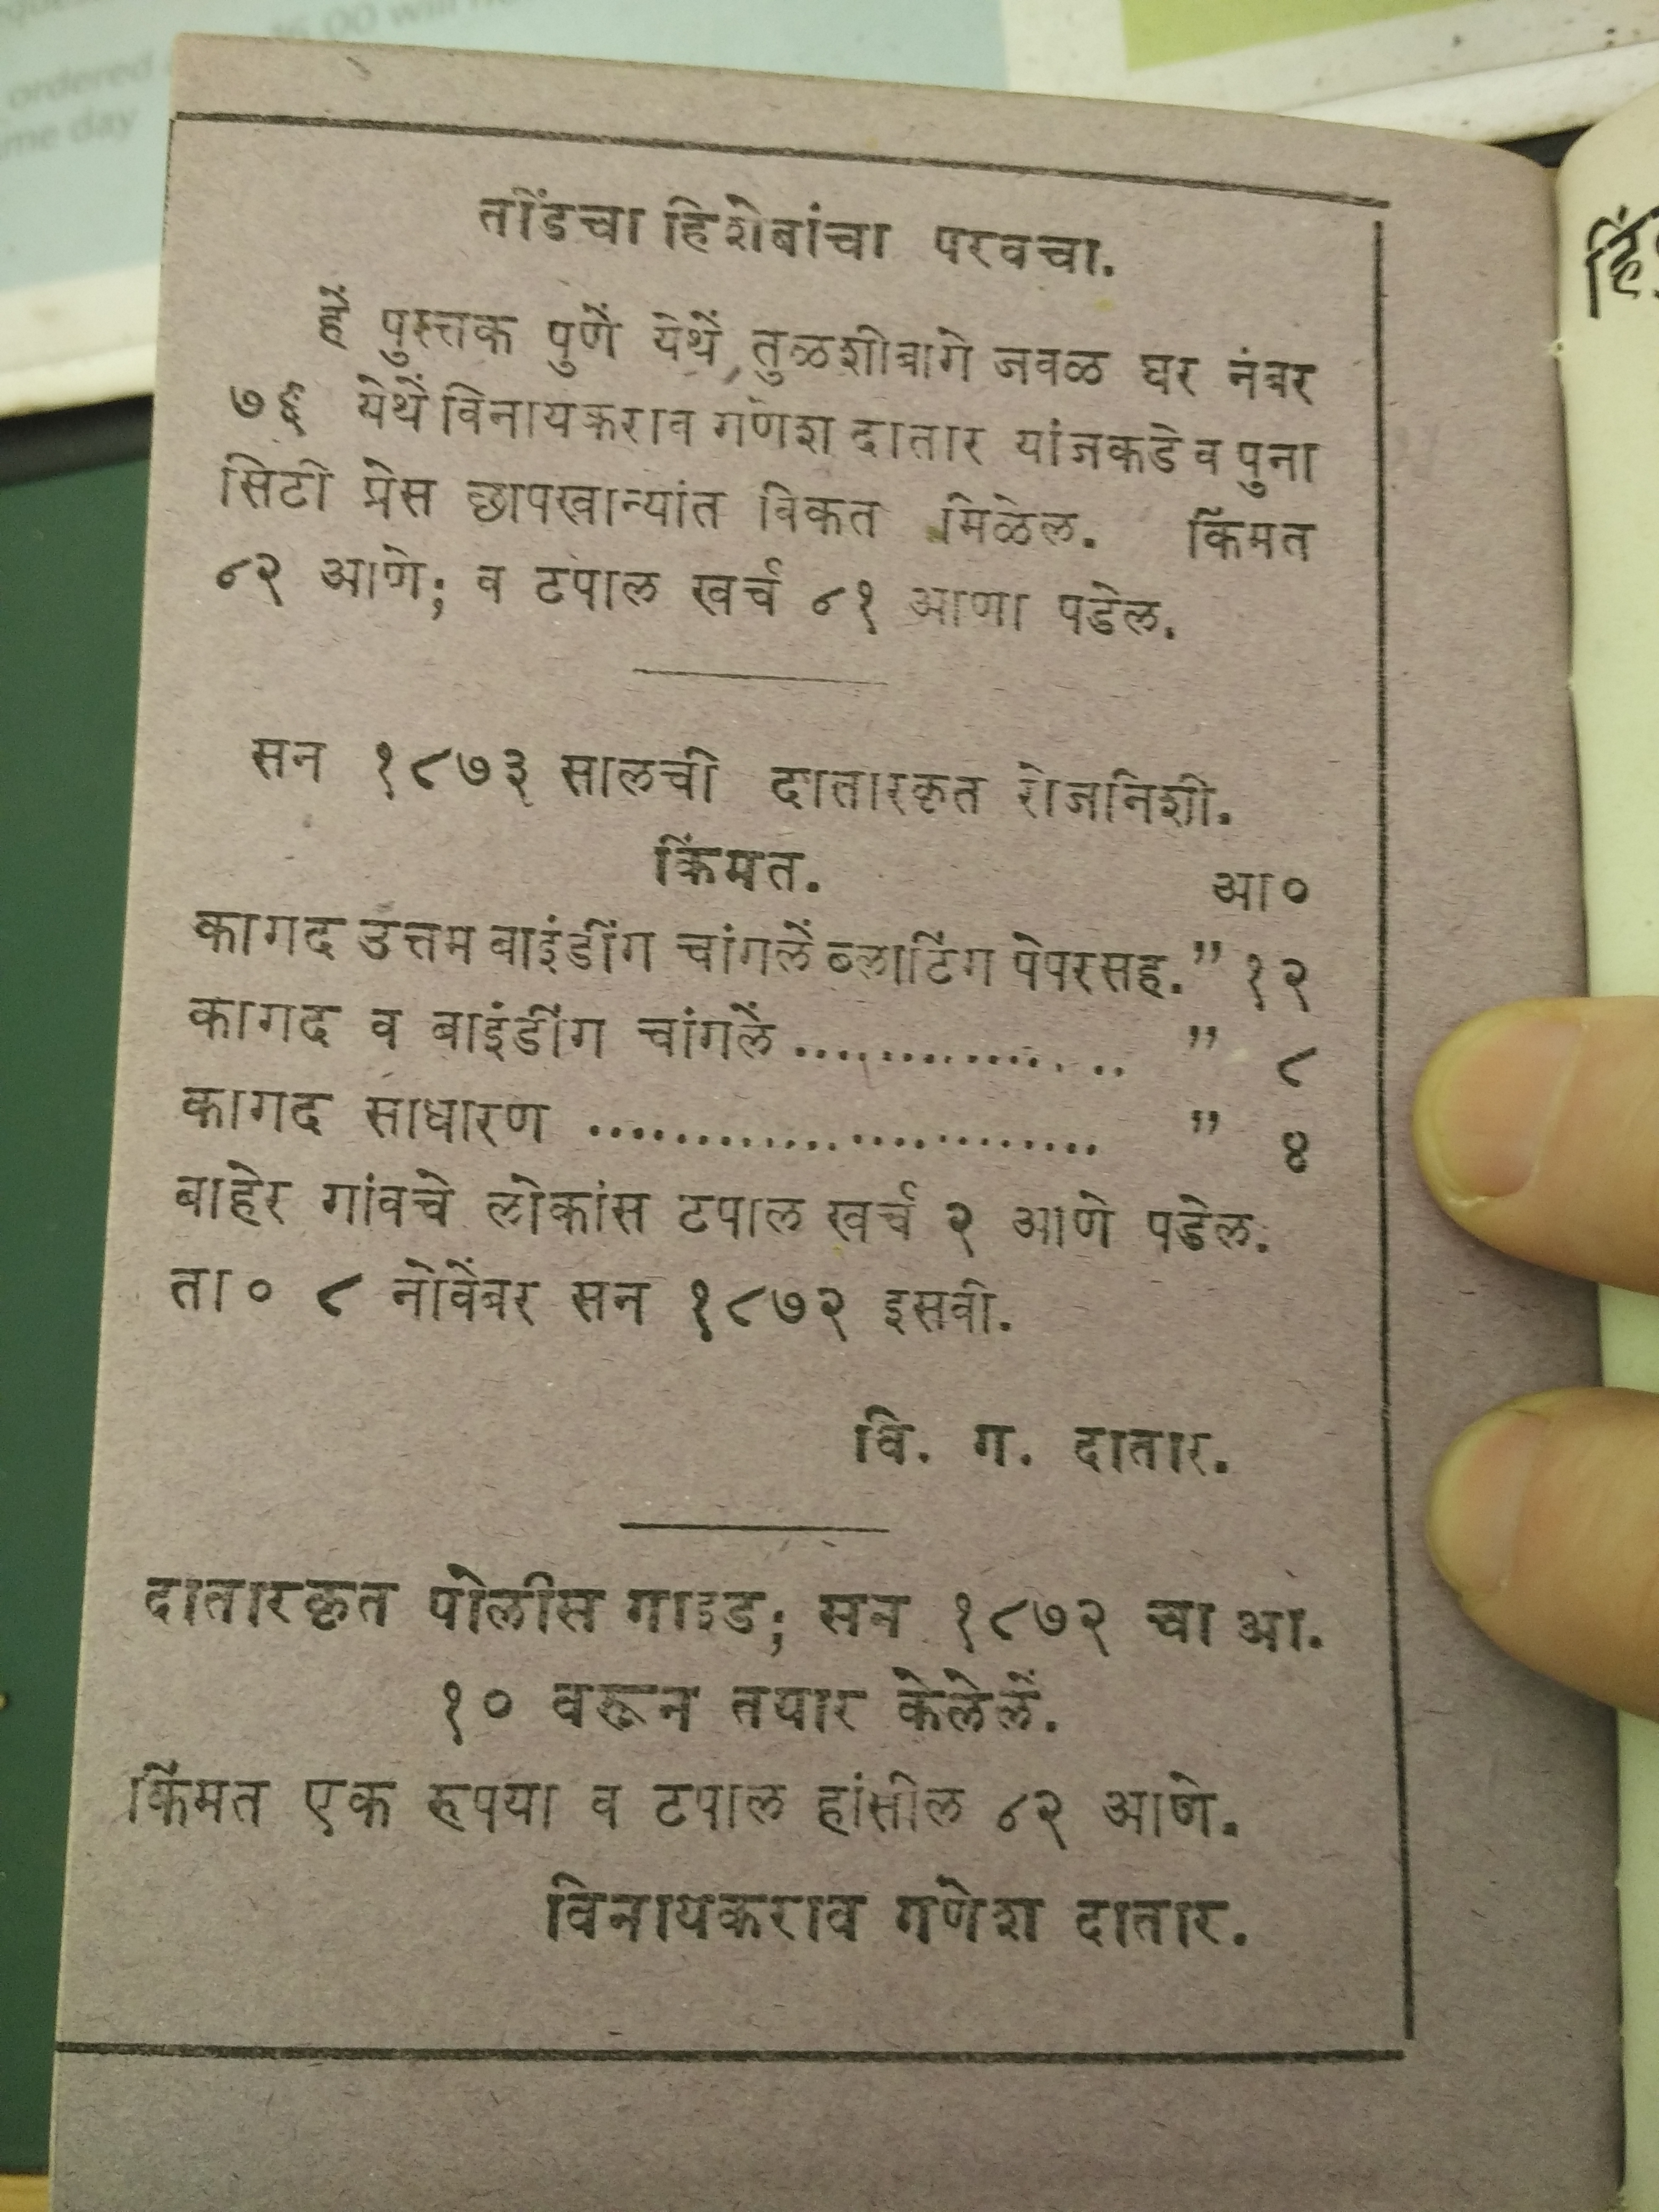 तोंडचा हिशेबांचा परवचा.
हें पुस्तक पुणें येथें, तुळशीबागे जवळ घर नंबर
७६ येथें विनायकराव गणेश दातार यांजकडे व पुना
सिटी प्रेस छापखान्यांत विकत मिळेल. किंमत
८२ आणे; व टपाल खर्च ८१ आणा पडेल.
सन १८७३ सालची दातारकृत रोजनिशी.
किंमत. आ०
कागद उत्तम बाइंडींग चांगलें ब्लाटिंग पेपरसह. ” १२
कागद व बाइंडींग चांगलें ............... ” ८
कागद साधारण ........................ ” ४
बाहेर गांवचे लोकांस टपाल खर्च २ आणे पडेल.
ता० ८ नोवेंबर सन १८७२ इसवी.
वि. ग. दातार.
दातारकृत पोलीस गाइड; सन १८७२ चा आ.
१० वरून तयार केलेलें.
किंमत एक रूपया व टपाल हांसील ८२ आणे.
विनायकराव गणेश दातार.
ordered
same day